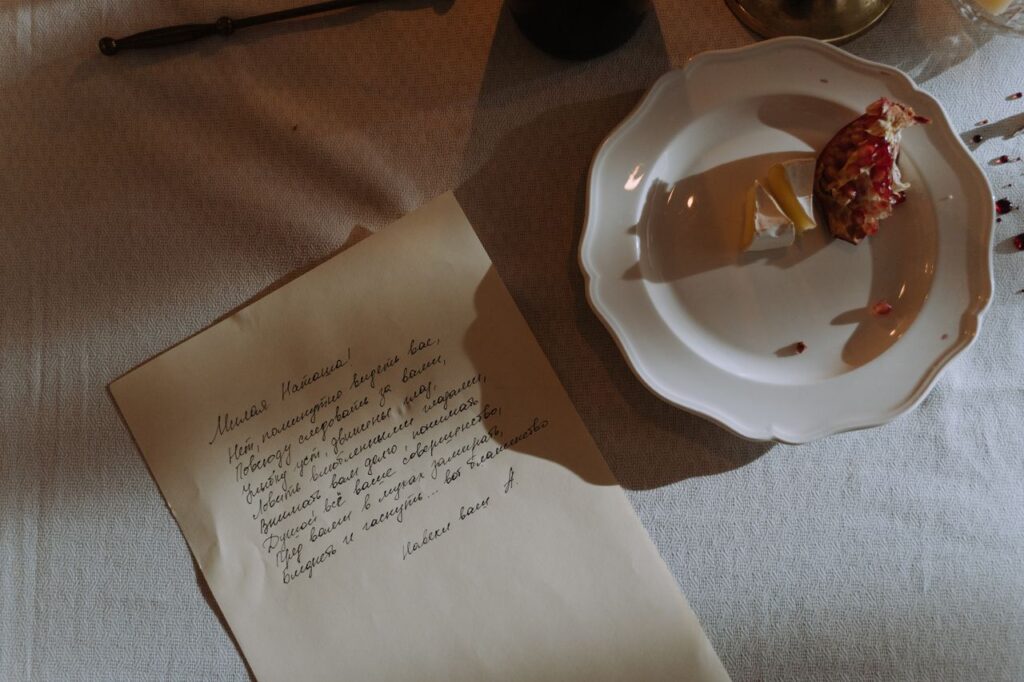 Милая Наташа!
Нет, поминутно видеть вас,
Повсюду следовать за вами,
Улыбку уст, движенье глаз,
Ловить влюбленными глазами,
Внимать вам долго, понимать
Душой всё ваше совершенство,
Пред вами в муках замирать,
Бледнеть и гаснуть... вот блаженство
Навеки ваш А.